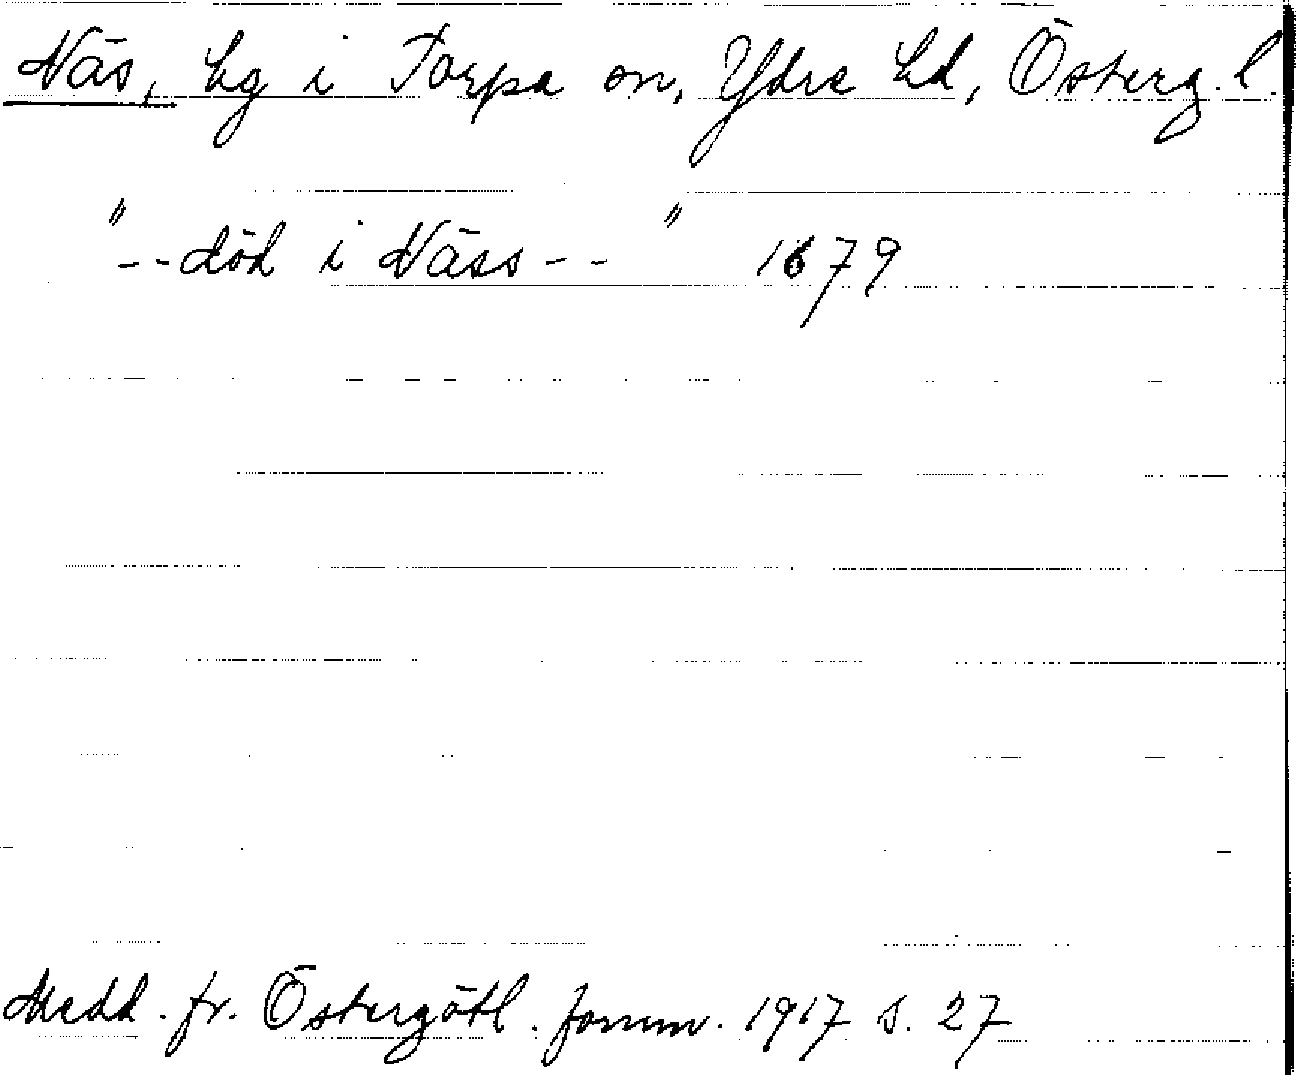 Näs, hg i Torpa sn, Ydre hd, Österg. l.
"--död i Näss--" 1679
Medd. fr. Östergötl. fornm. 1917 s. 27